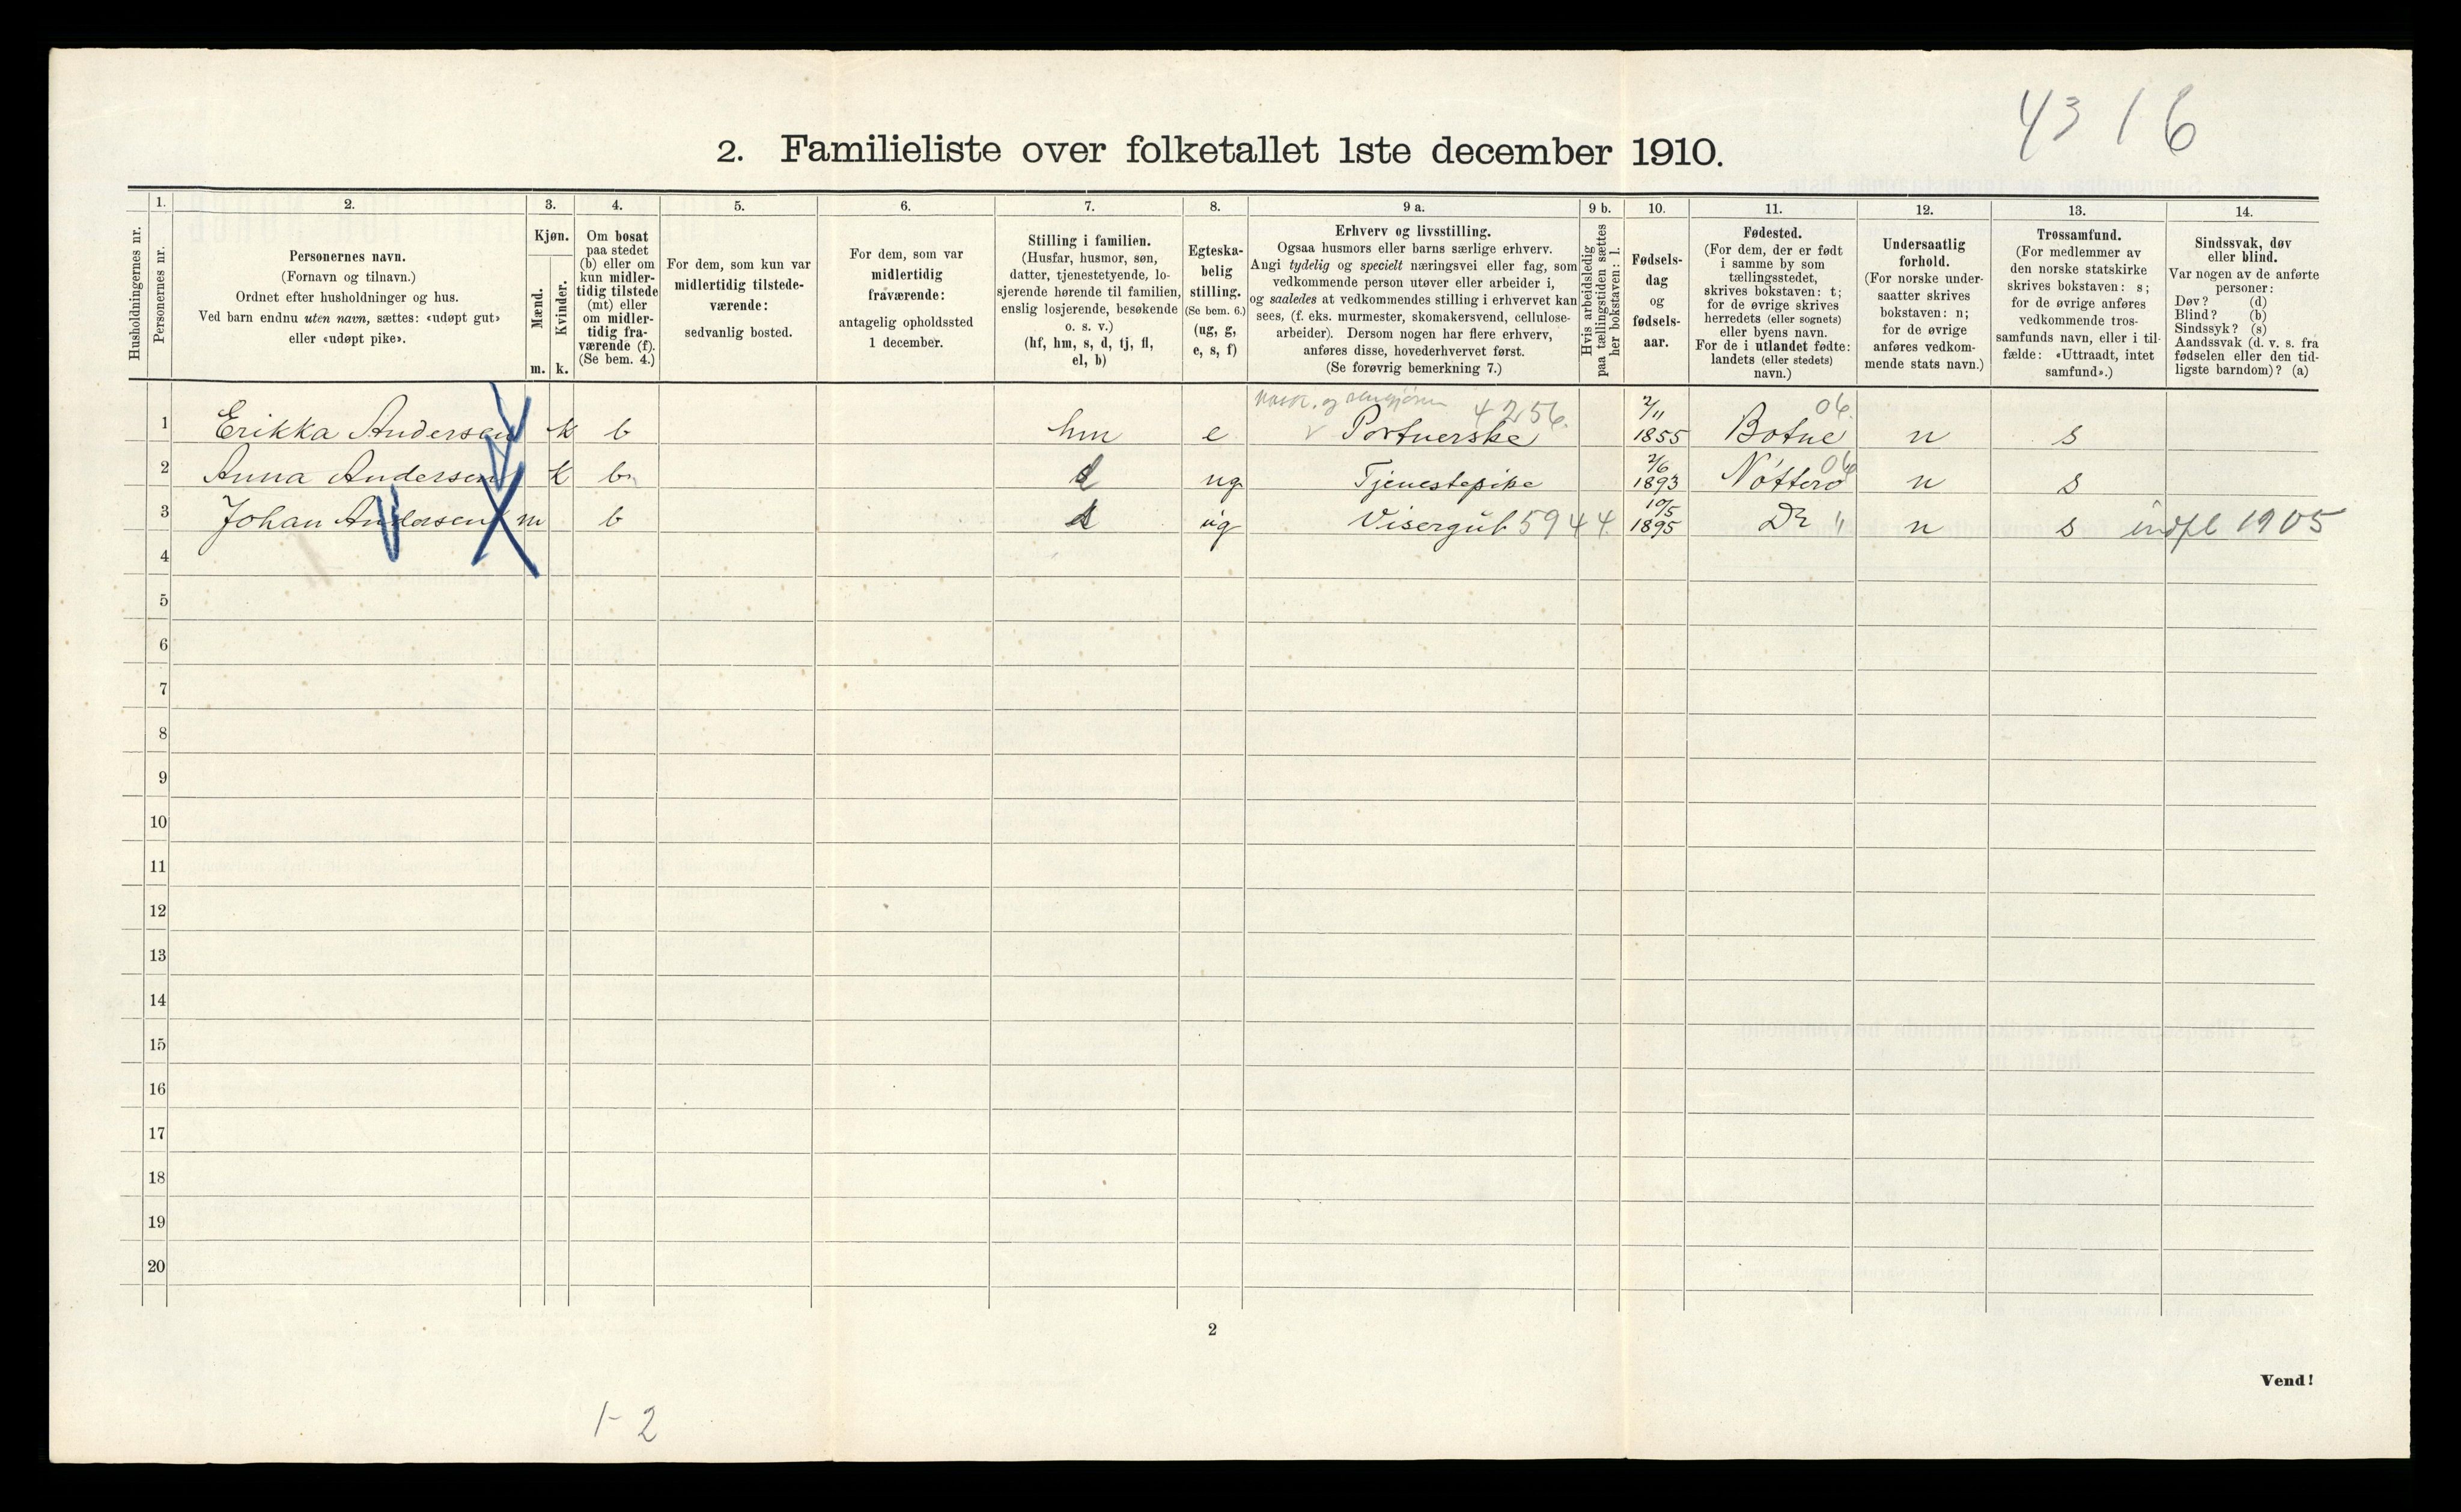 4316
2. Familieliste over folketallet 1ste december 1910.
Husholdningernes nr.
1.
Personernes nr.
2.
Personernes navn.
(Fornavn og tilnavn.)
Ordnet efter husholdninger og hus.
Ved barn endnu uten navn, sættes: «udøpt gut»
eller «udøpt pike».
3.
Kjøn.
Mænd.
Kvinder.
m. k.
4.
Om bosat
paa stedet
(b) eller om
kun midler-
tidig tilstede
(mt) eller
om midler-
tidig fra-
værende (f).
(Se bem. 4.)
5.
For dem, som kun var
midlertidig tilstede-
værende:
sedvanlig bosted.
6.
For dem, som var
midlertidig
fraværende:
antagelig opholdssted
1 december.
7.
Stilling i familien.
(Husfar, husmor, søn,
datter, tjenestetyende, lo-
sjerende hørende til familien,
enslig losjerende, besøkende
o. s. v.)
(hf, hm, s, d, tj, fl,
el, b)
8.
Egteska-
belig
stilling.
(Se bem. 6.)
(ug, g,
e, s, f)
9 a.
Erhverv og livsstilling.
Ogsaa husmors eller barns særlige erhverv.
Angi tydelig og specielt næringsvei eller fag, som
vedkommende person utøver eller arbeider i,
og saaledes at vedkommendes stilling i erhvervet kan
sees, (f. eks. murmester, skomakersvend, cellulose-
arbeider). Dersom nogen har flere erhverv,
anføres disse, hovederhvervet først.
(Se forøvrig bemerkning 7.)
9 b.
Hvis arbeidsledig
paa tællingstiden sættes
her bokstaven: l.
10.
Fødsels-
dag
og
fødsels-
aar.
11.
Fødested.
(For dem, der er født
i samme by som
tællingsstedet,
skrives bokstaven: t;
for de øvrige skrives
herredets (eller sognets)
eller byens navn.
For de i utlandet fødte:
landets (eller stedets)
navn.)
12.
Undersaatlig
forhold.
(For norske under-
saatter skrives
bokstaven: n;
for de øvrige
anføres vedkom-
mende stats navn.)
13.
Trossamfund.
(For medlemmer av
den norske statskirke
skrives bokstaven: s;
for de øvrige anføres
vedkommende tros-
samfunds navn, eller i til-
fælde: «Uttraadt, intet
samfund».)
14.
Sindssvak, døv
eller blind.
Var nogen av de anførte
personer:
Døv? (d)
Blind? (b)
Sindssyk? (s)
Aandssvak (d. v. s. fra
fødselen eller den tid-
ligste barndom)? (a)
og 4256. 2/11 06.
1 Erikka Andersen k b hm e Portnerske 1855 Botne n s
2/6 04
2 Anna Andersen k b d ug Tjenestepike 1893 Nøtterø n s
10/5
3 Johan Andersen m b s ug Visergut 5944. 1895 Do " n s indfl 1905
4
5
6
7
8
9
10
11
12
13
14
15
16
17
18
19
20
2
Vend!
1-2